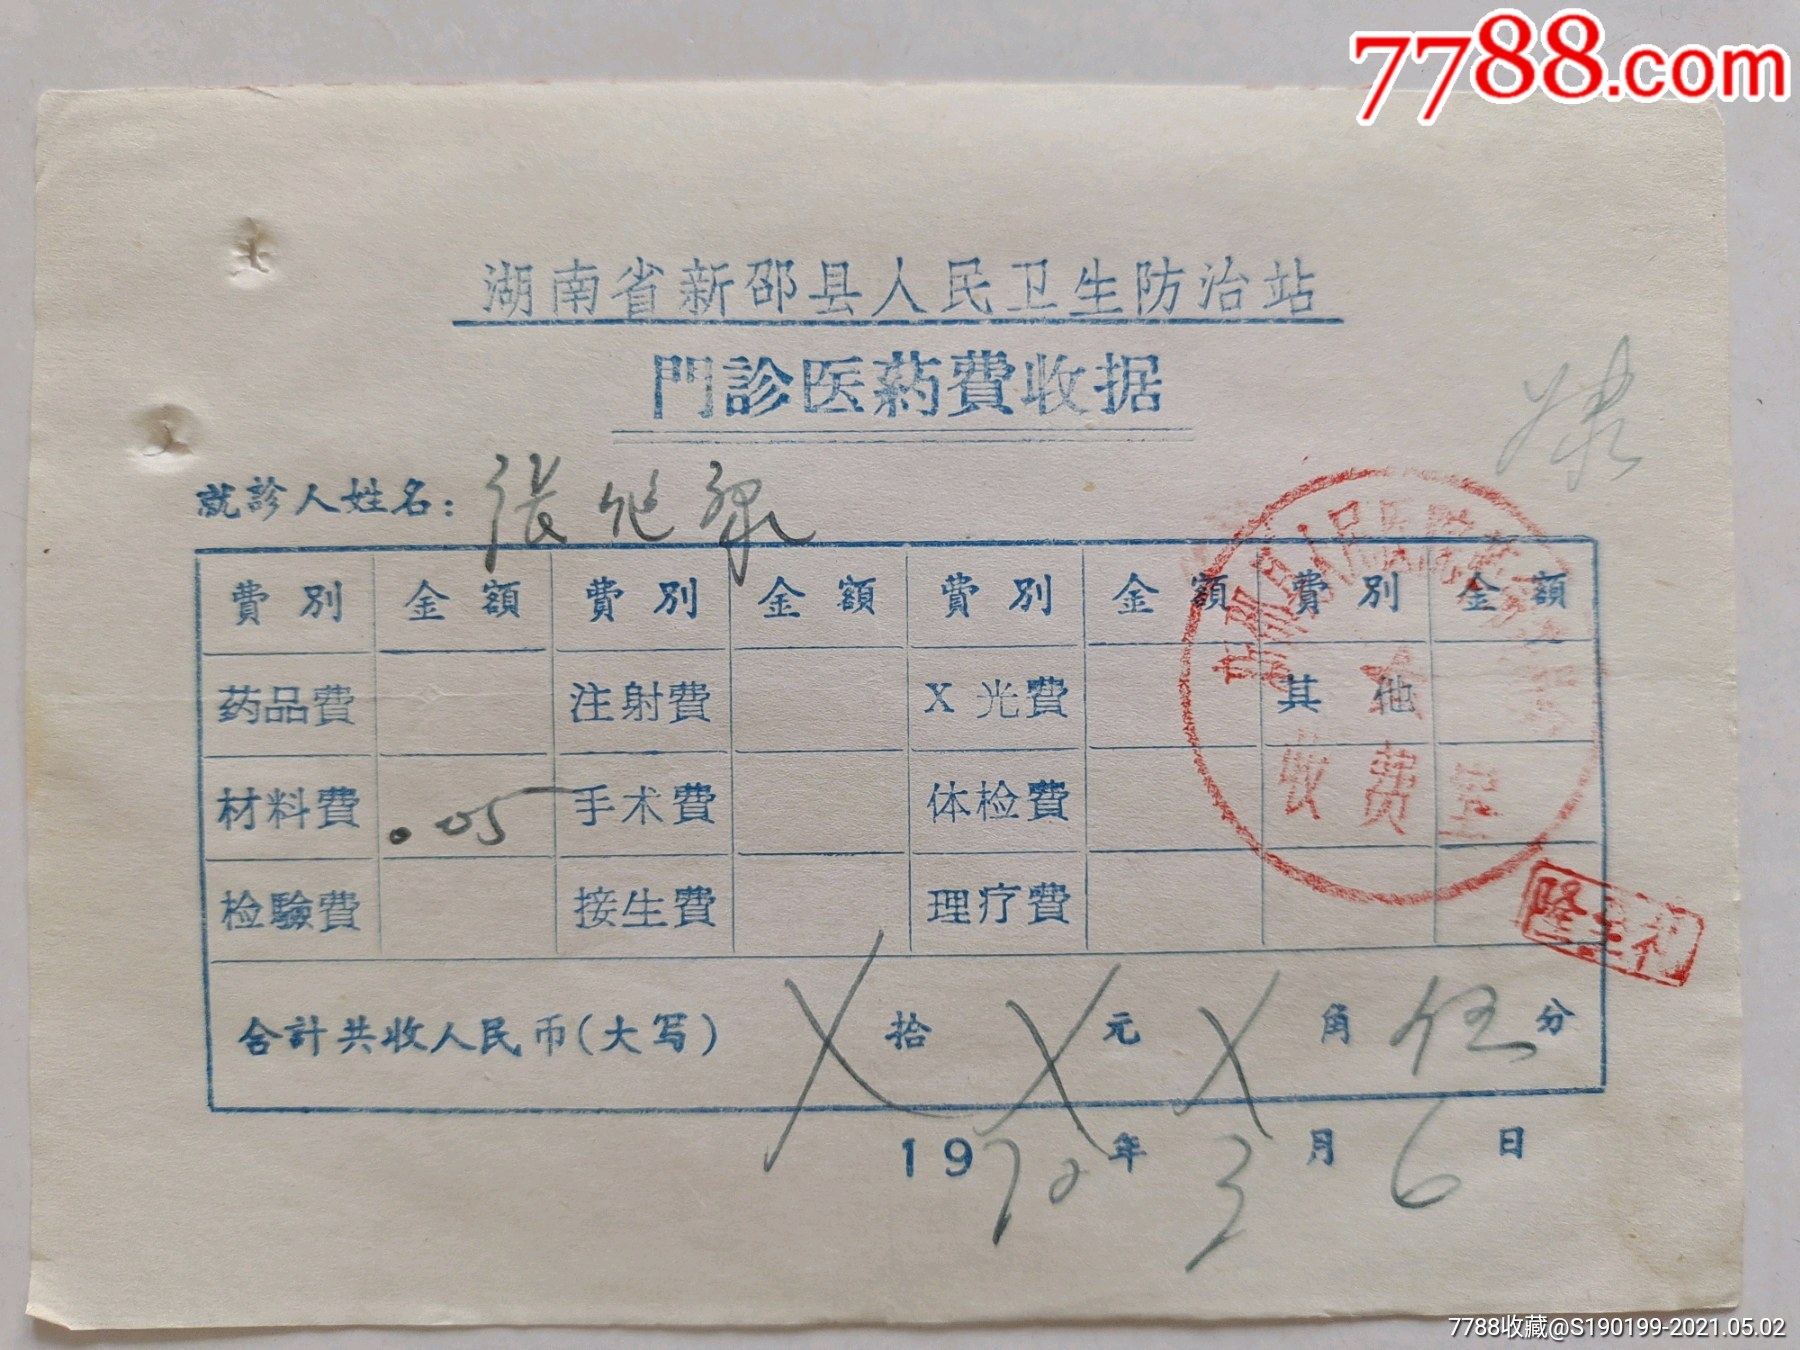 7788.com
湖南省新邵县人民卫生防治站
門診医药費收据
就診人姓名：張
費別 金額 費別 金額 費別 金額 費別 金額
药品費 注射費 X光費 其他
材料費 .05 手术費 体检費
检驗費 接生費 理疗費
收费室
合計共收人民币(大写) X拾X元X角伍分
1970年3月6日
7788收藏@S190199-2021.05.02